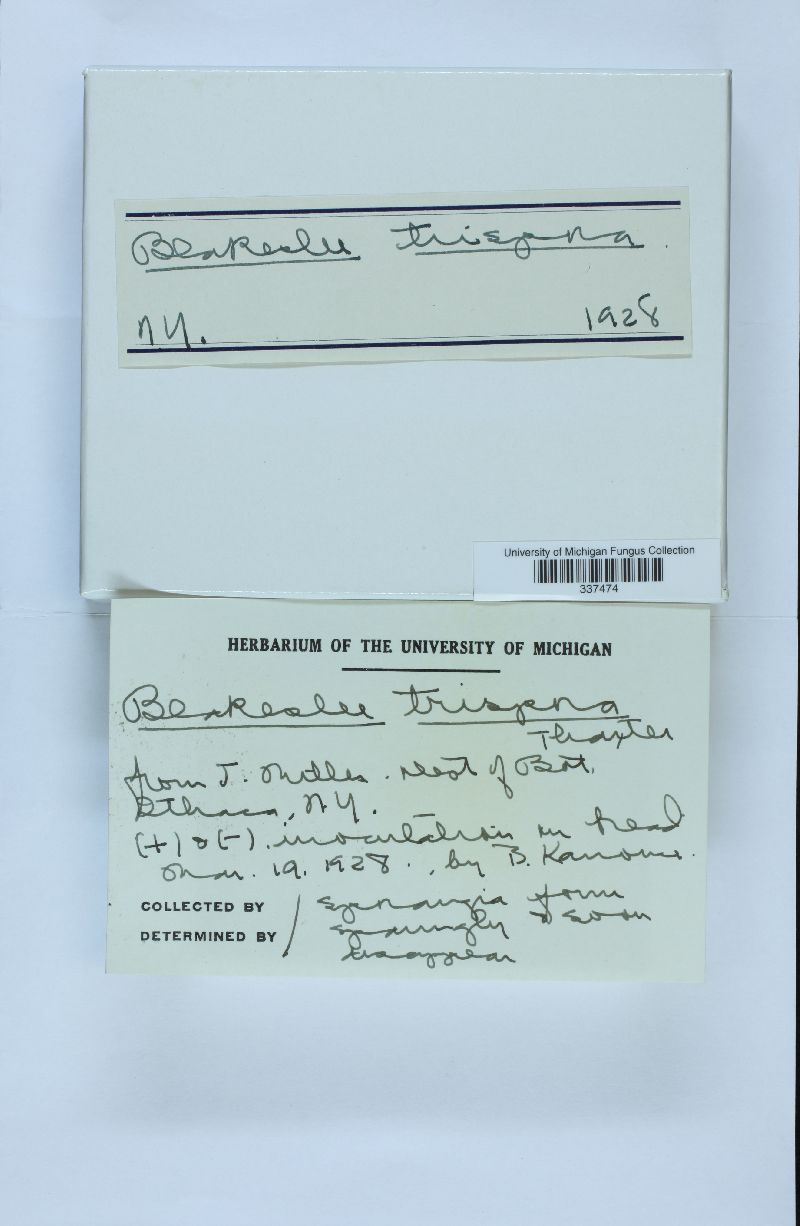 Blakeslee trispora.
N.Y. 1928
University of Michigan Fungus Collection
337474
HERBARIUM OF THE UNIVERSITY OF MICHIGAN
Blakeslee trispora
Thaxter
from J. Miller. Dept of Bot.
Ithaca, N.Y.
(+) & (-) inoculation on bread
Mar. 19. 1928., by B. Kanouse.
COLLECTED BY
DETERMINED BY
Sporangia form
sparingly & soon
disappear